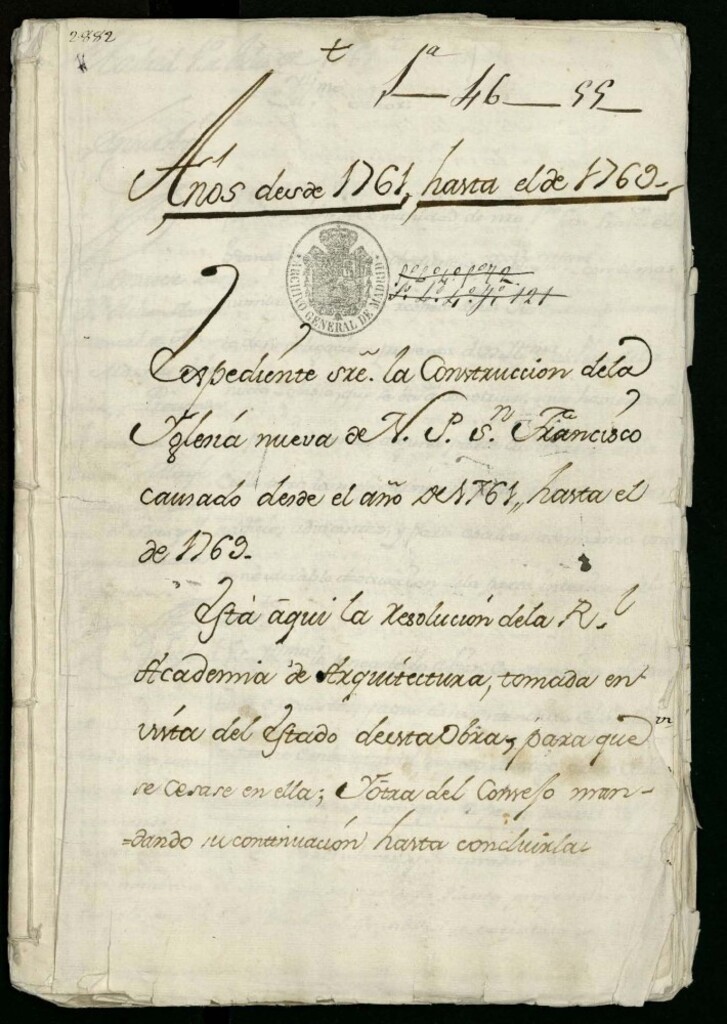 2882
1ª 46 55
Años desde 1761, hasta el de 1769.
ARCHIVO GENERAL DE MADRID
Expediente sre. la Construccion dela
Yglesia nueva de N. P. S.n Francisco
causado desde el año de 1761, hasta el
de 1769.
Està aqui la Resolución dela R.l
Academia de Arquitectura, tomada en
vista del Estado deesta Obra, para que
se cesase en ella; Y òtra del Consejo man-
=dando su continuación hasta concluirla.